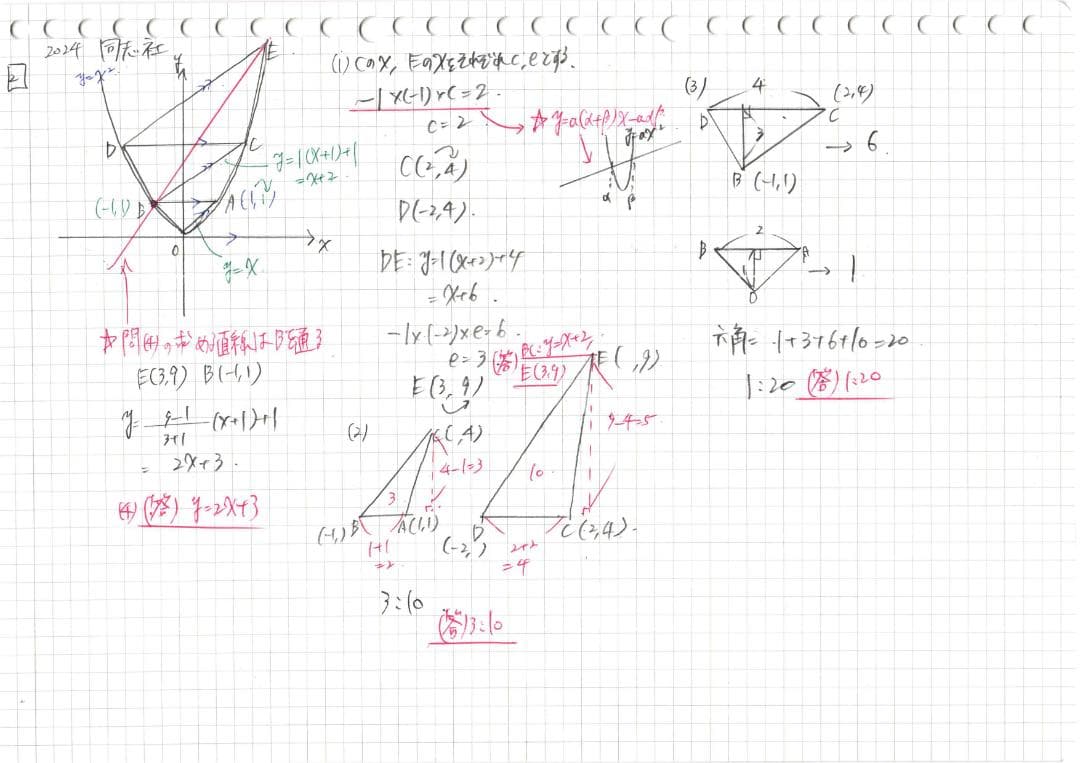 2024 同志社
2
y=x²
y
E
D
C
y=1(x+1)+1
=x+2
(-1,1) B
A(1,1)
O
x
y=x
☆問(4)の求める直線はBを通る
E(3,9) B(-1,1)
y= 9-1/3+1 (x+1)+1
= 2x+3.
(4) (答) y=2x+3
(1) Cのx, Eのxをそれぞれc,eとする.
-1×(-1)×c=2.
c=2
→ ☆ y=a(α+β)x-aαβ
y=ax²
α β
C(2,4)
D(-2,4).
DE: y=1(x+2)+4
=x+6.
-1×(-2)×e=6.
e=3
(答) BC: y=x+2,
E(3,9)
E(3,9)
(2)
C(,4)
4-1=3
3
(-1,) B
A(1,1)
1+1
=2
E(,9)
9-4=5
10
D
(-2,)
C(2,4).
2+2
=4
3:10
(答)3:10
(3)
4
(2,4)
D
C
3
→ 6.
B (-1,1)
2
B
A
1
O
→ 1
六角=1+3+6+10=20
1:20 (答)1:20